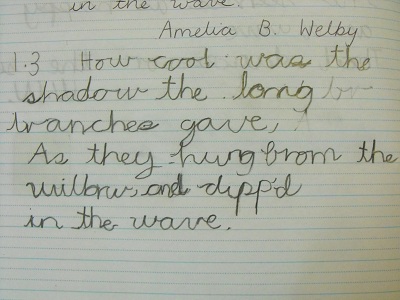 in the wave.
Amelia B. Welby
1.3 How cool was the
shadow the long br-
branches gave,
As they hung from the
willow, and dipp'd
in the wave.